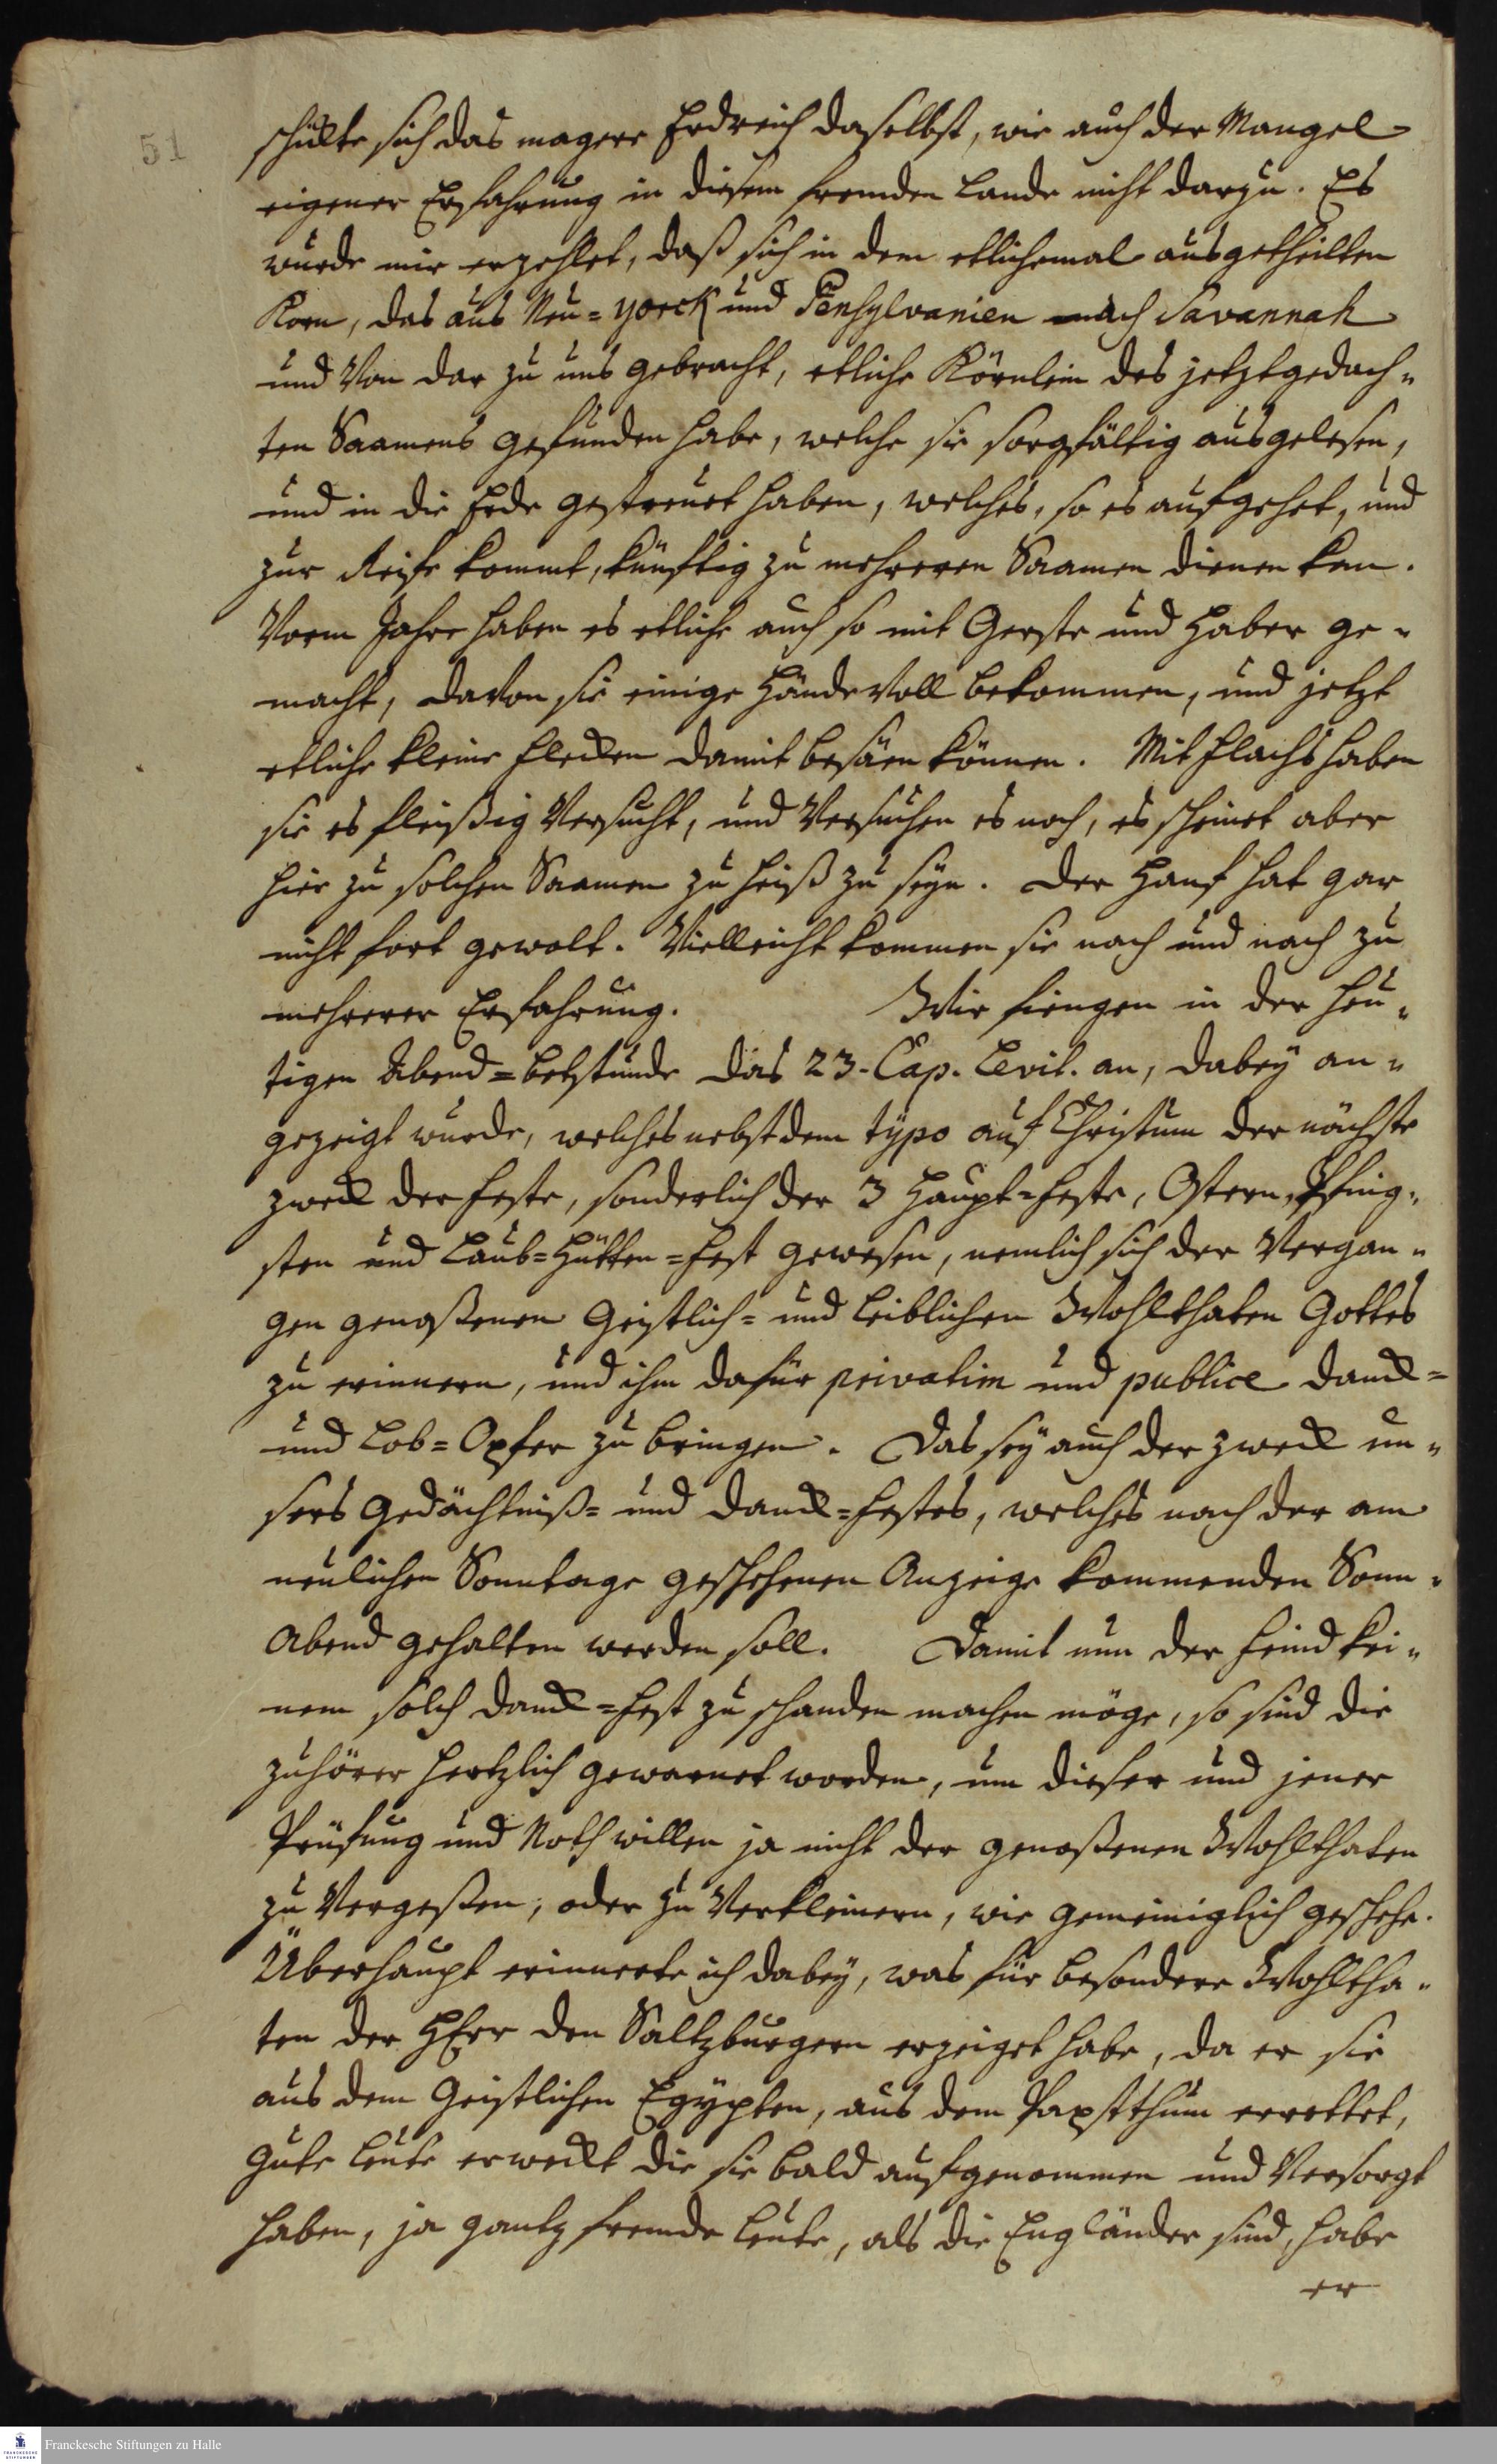 51
schickte sich das magere Erdreich daselbst, wie auch der Mangel
eigener Erfahrung in diesem fremden Lande nicht darzu. Es
wurde mir erzehlet, daß sich in dem etlichemal ausgetheilten
Korn, das aus Neu=Yorck und Pensylvanien nach Savannah
und von dar zu uns gebracht, etliche Körnlein des jetztgedach=
ten Saamens gefunden habe, welche sie sorgfältig ausgelesen,
und in die Erde gestreuet haben, welches, so es aufgehet, und
zur Reife kommt, künftig zu mehreren Saamen dienen kan.
Vorm Jahre haben es etliche auch so mit Gerste und Haber ge=
macht, davon sie einige Hände voll bekommen, und jetzt
etliche kleine Flecken damit besäen können. Mit Flachs haben
sie es fleißig versucht, und versuchen es noch, es scheinet aber
hier zu solchen Saamen zu heiß zu seyn. Der Hanf hat gar
nicht fort gewolt. Vielleicht kommen sie nach und nach zu
mehrerer Erfahrung. Wir fiengen in der heu=
tigen Abend=Betstunde das 23. Cap. Levit. an, dabey an=
gezeigt wurde, welches nebst dem typo auf Christum der nächste
Zweck der Feste, sonderlich der 3 Haupt=Feste, Ostern, Pfing=
sten und Laub=Hütten=Fest gewesen, nemlich sich der vergan=
gen genoßenen Geistlich= und Leiblichen Wohlthaten Gottes
zu erinnern, und ihm dafür privatim und publice Danck=
und Lob=Opfer zu bringen. Das sey auch der Zweck un=
sers Gedächtniß= und Danck=Festes, welches nach der am
neulichen Sonntage geschehenen Anzeige kommenden Sonn=
Abend gehalten werden soll. Damit nun der Feind kei=
nem solch Danck=Fest zu schanden machen möge, so sind die
Zuhörer hertzlich gewarnet worden, um dieser und jener
Prüfung und Noth willen ja nicht der genoßenen Wohlthaten
zu vergeßen, oder zu verkleinern, wie gemeiniglich geschehe.
Überhaupt erinnerte ich dabey, was für besondere Wohltha=
ten der HErr den Saltzburgern erzeiget habe, da er sie
aus dem Geistlichen Egypten, aus dem Papstthum errettet,
gute Leute erweckt die sie bald aufgenommen und versorgt
haben, ja gantz fremde Leute, als die Engländer sind, habe
er
Franckesche Stiftungen zu Halle